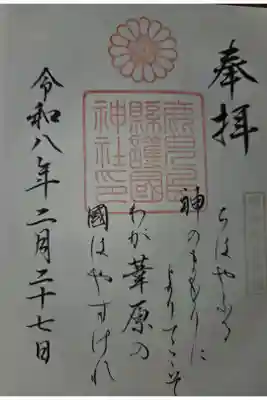 奉拝
ちはやふる
神のまもりに
よりてこそ
わが葦原の
國はやすけれ
鹿兒島
縣護國
神社印
令和八年二月二十七日